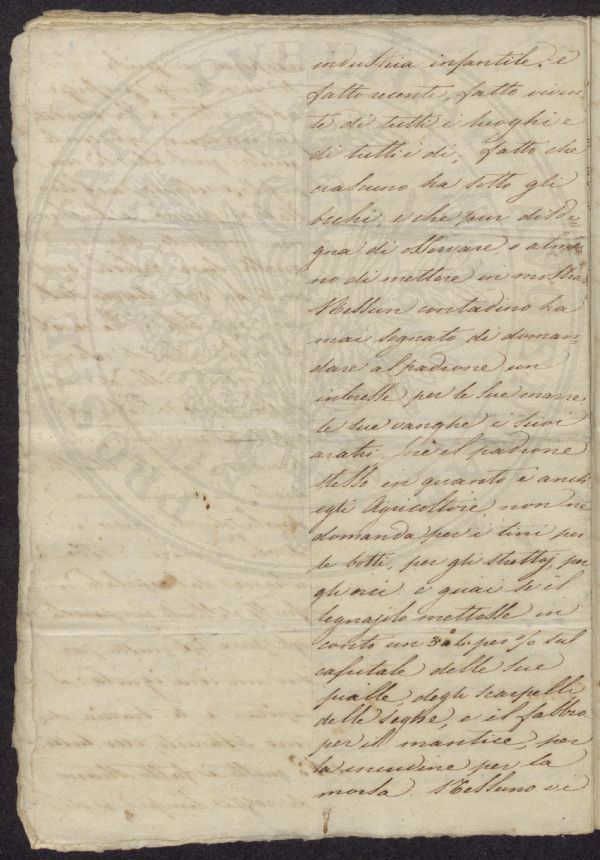 industria infantile. è
fatto recente, fatto viven-
te di tutti i luoghi e
di tutti i dì; fatto che
ciascuno ha sotto gli
occhi, e che pur disde-
gna di osservare, o alme-
no di mettere in mostra.
Nessun contadino ha
mai sognato di doman-
dare al padrone un
interesse per le sue marre
le sue vanghe i suoi
aratri, nè il padrone
stesso in quanto è anch'
egli Agricoltore, non ne
domanda per i tini per
le botti, per gli strettoj, per
gli orci e guai se il
legnajolo mettesse in
conto un 3 per % sul
capitale delle sue
pialle, degli scarpelli
delle seghe, e il fabbro
per il mantice, per
la incudine per la
morsa. Nessuno vi